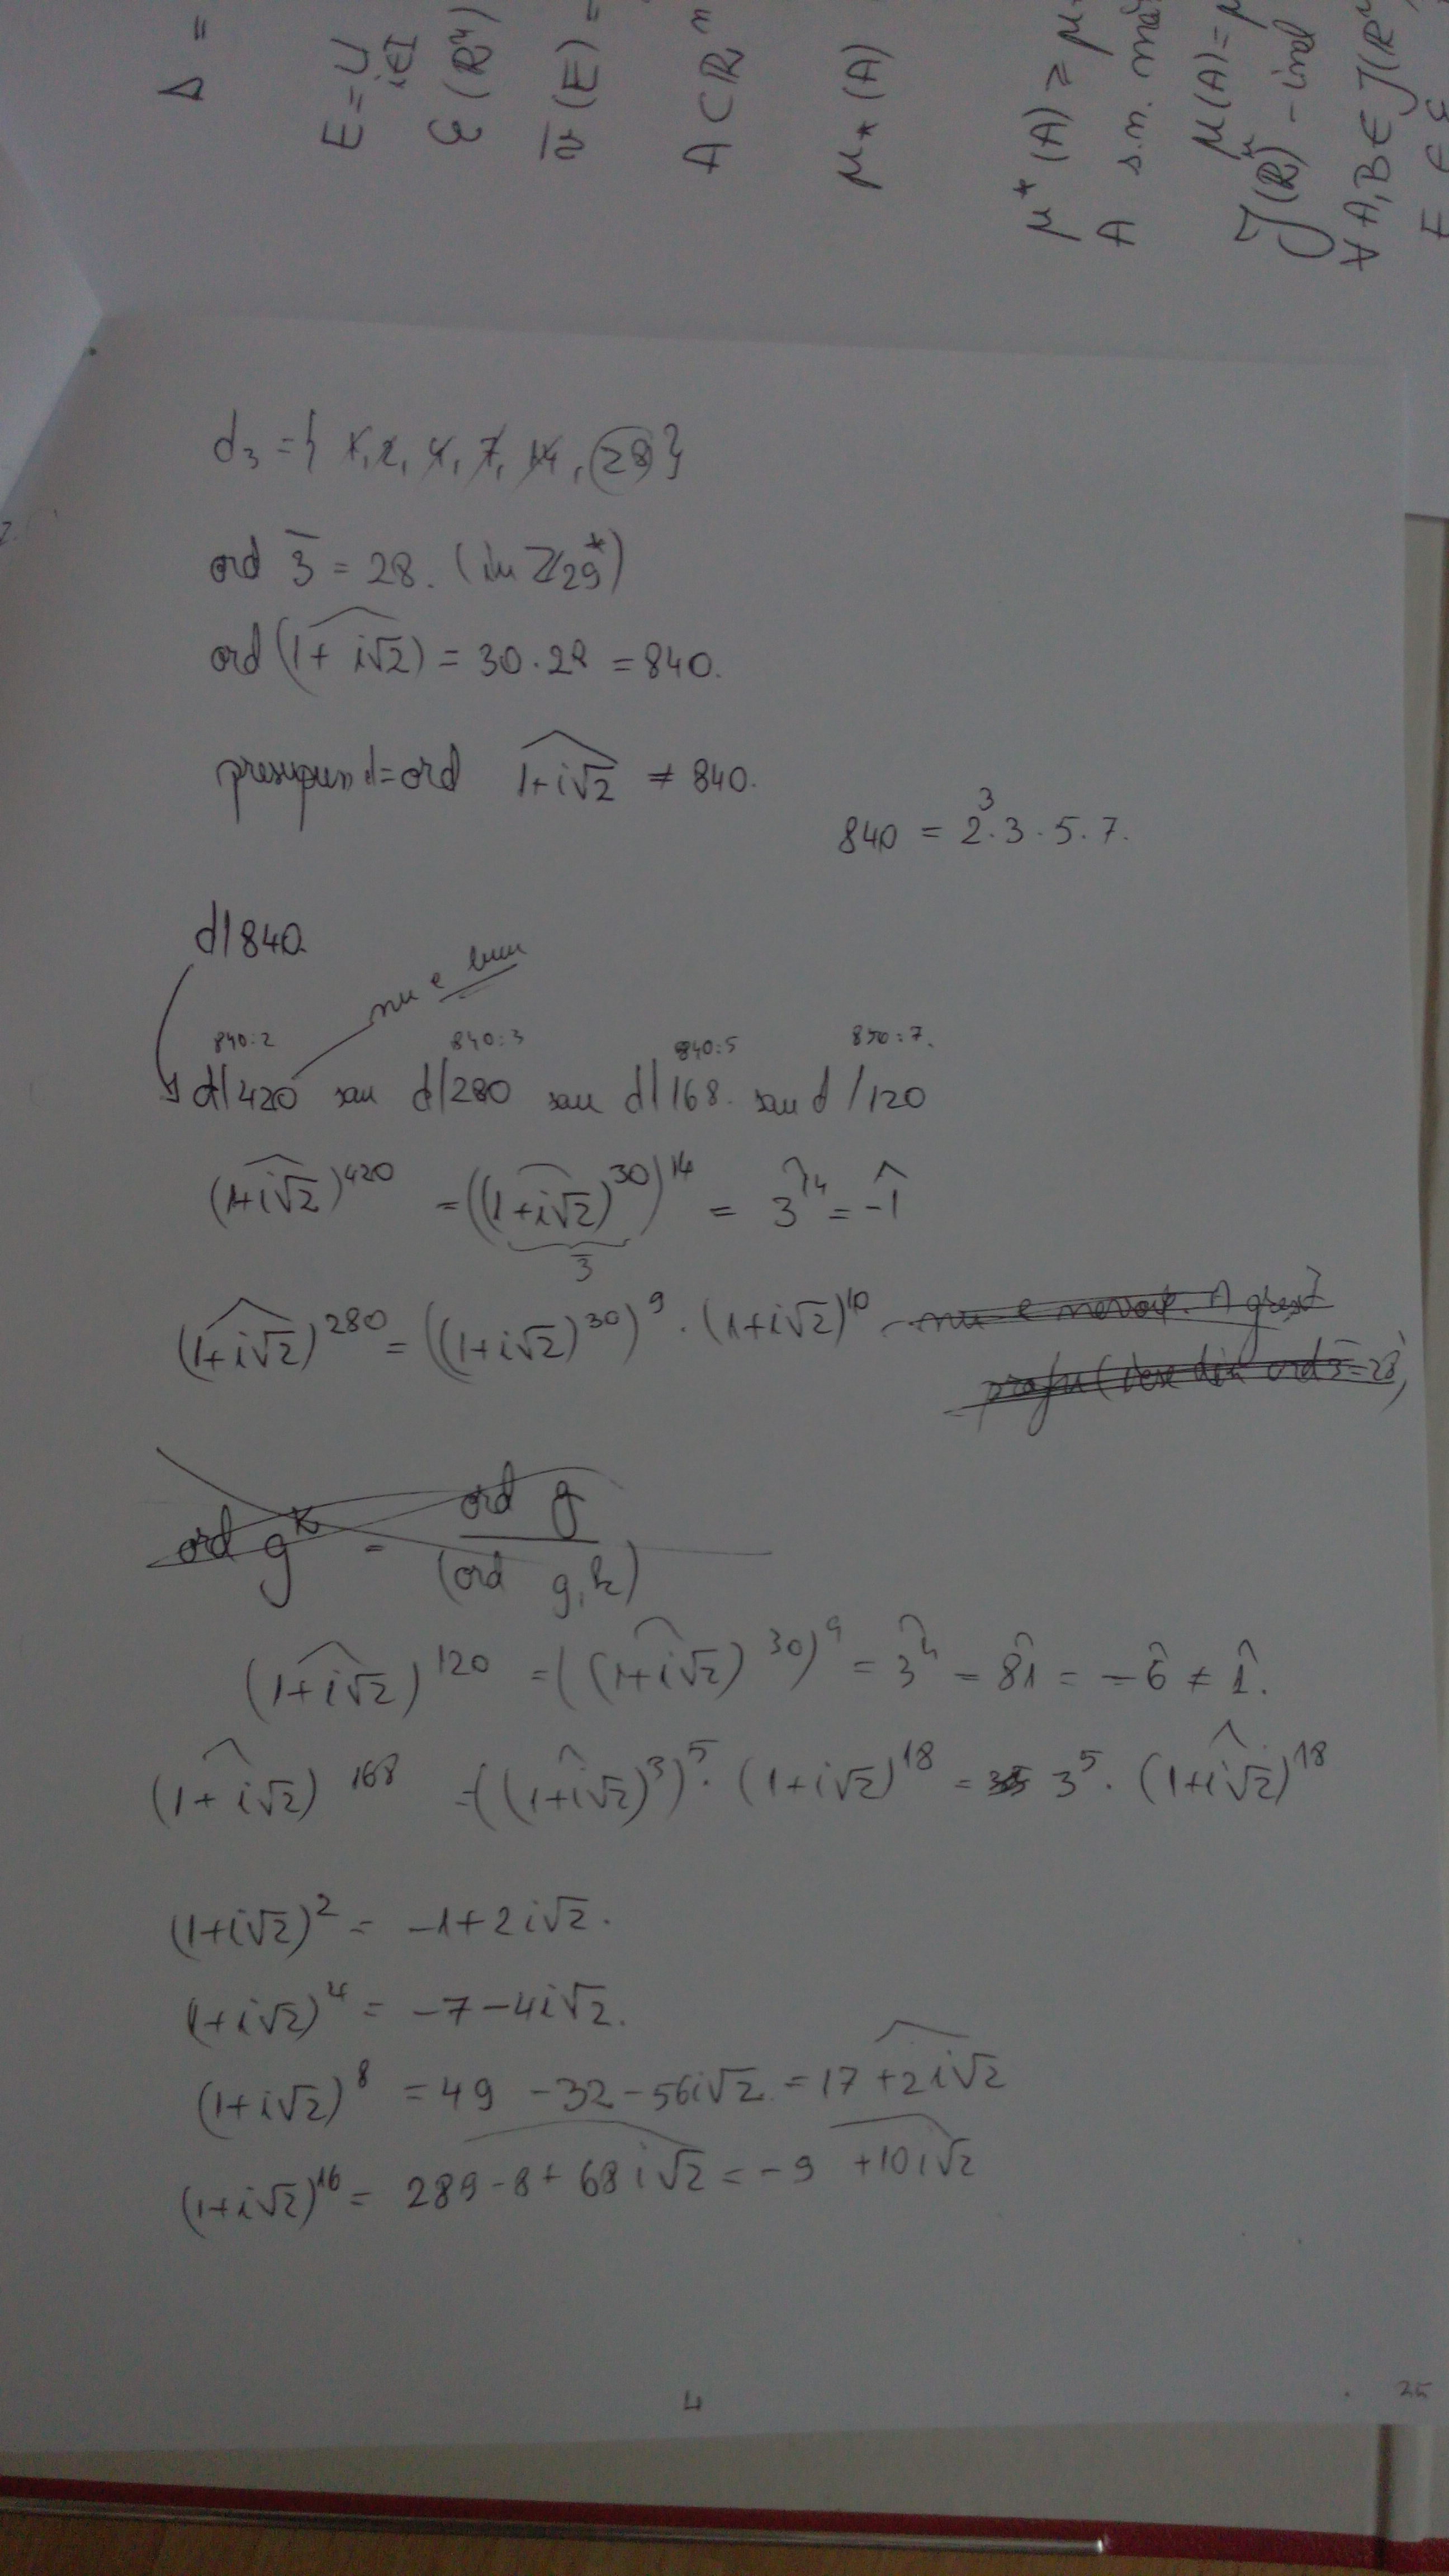 Δ =
E = ∪ i∈I
ℰ(ℝⁿ)
v̄(E) =
A ⊂ ℝⁿ
μ⁎(A)
μ*(A) ≥ μ
A s.n. mă
μ(A) = μ
J(ℝⁿ) - ind
∀A,B ∈ J(ℝⁿ
d₃ = { 1, 2, 4, 7, 14, 28 }
ord 3̄ = 28. (în ℤ₂₉*)
ord (1+i√2)^ = 30·28 = 840.
presupun d = ord (1+i√2)^ ≠ 840.
840 = 2³·3·5·7.
d|840.
nu e bun
840:2 840:3 840:5 850:7.
d|420 sau d|280 sau d|168. sau d|120
(1+i√2)^420 = ((1+i√2)^30)^14 = 3^14 = -1
3̄
(1+i√2)^280 = ((1+i√2)^30)^9 · (1+i√2)^10
ord g^k = ord g / (ord g, k)
(1+i√2)^120 = ((1+i√2)^30)^4 = 3^4 = 81 = -6 ≠ 1.
(1+i√2)^168 = ((1+i√2)^3)^5 · (1+i√2)^18 = 3^5 · (1+i√2)^18
(1+i√2)² = -1+2i√2.
(1+i√2)⁴ = -7-4i√2.
(1+i√2)⁸ = 49 -32 -56i√2 = 17+2i√2
(1+i√2)^16 = 289-8+68i√2 = -9 +10i√2
4